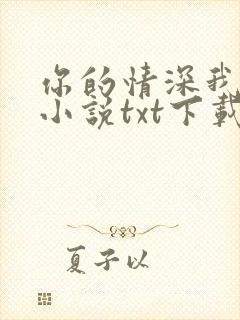 你的情深我
小说txt下载
夏子以